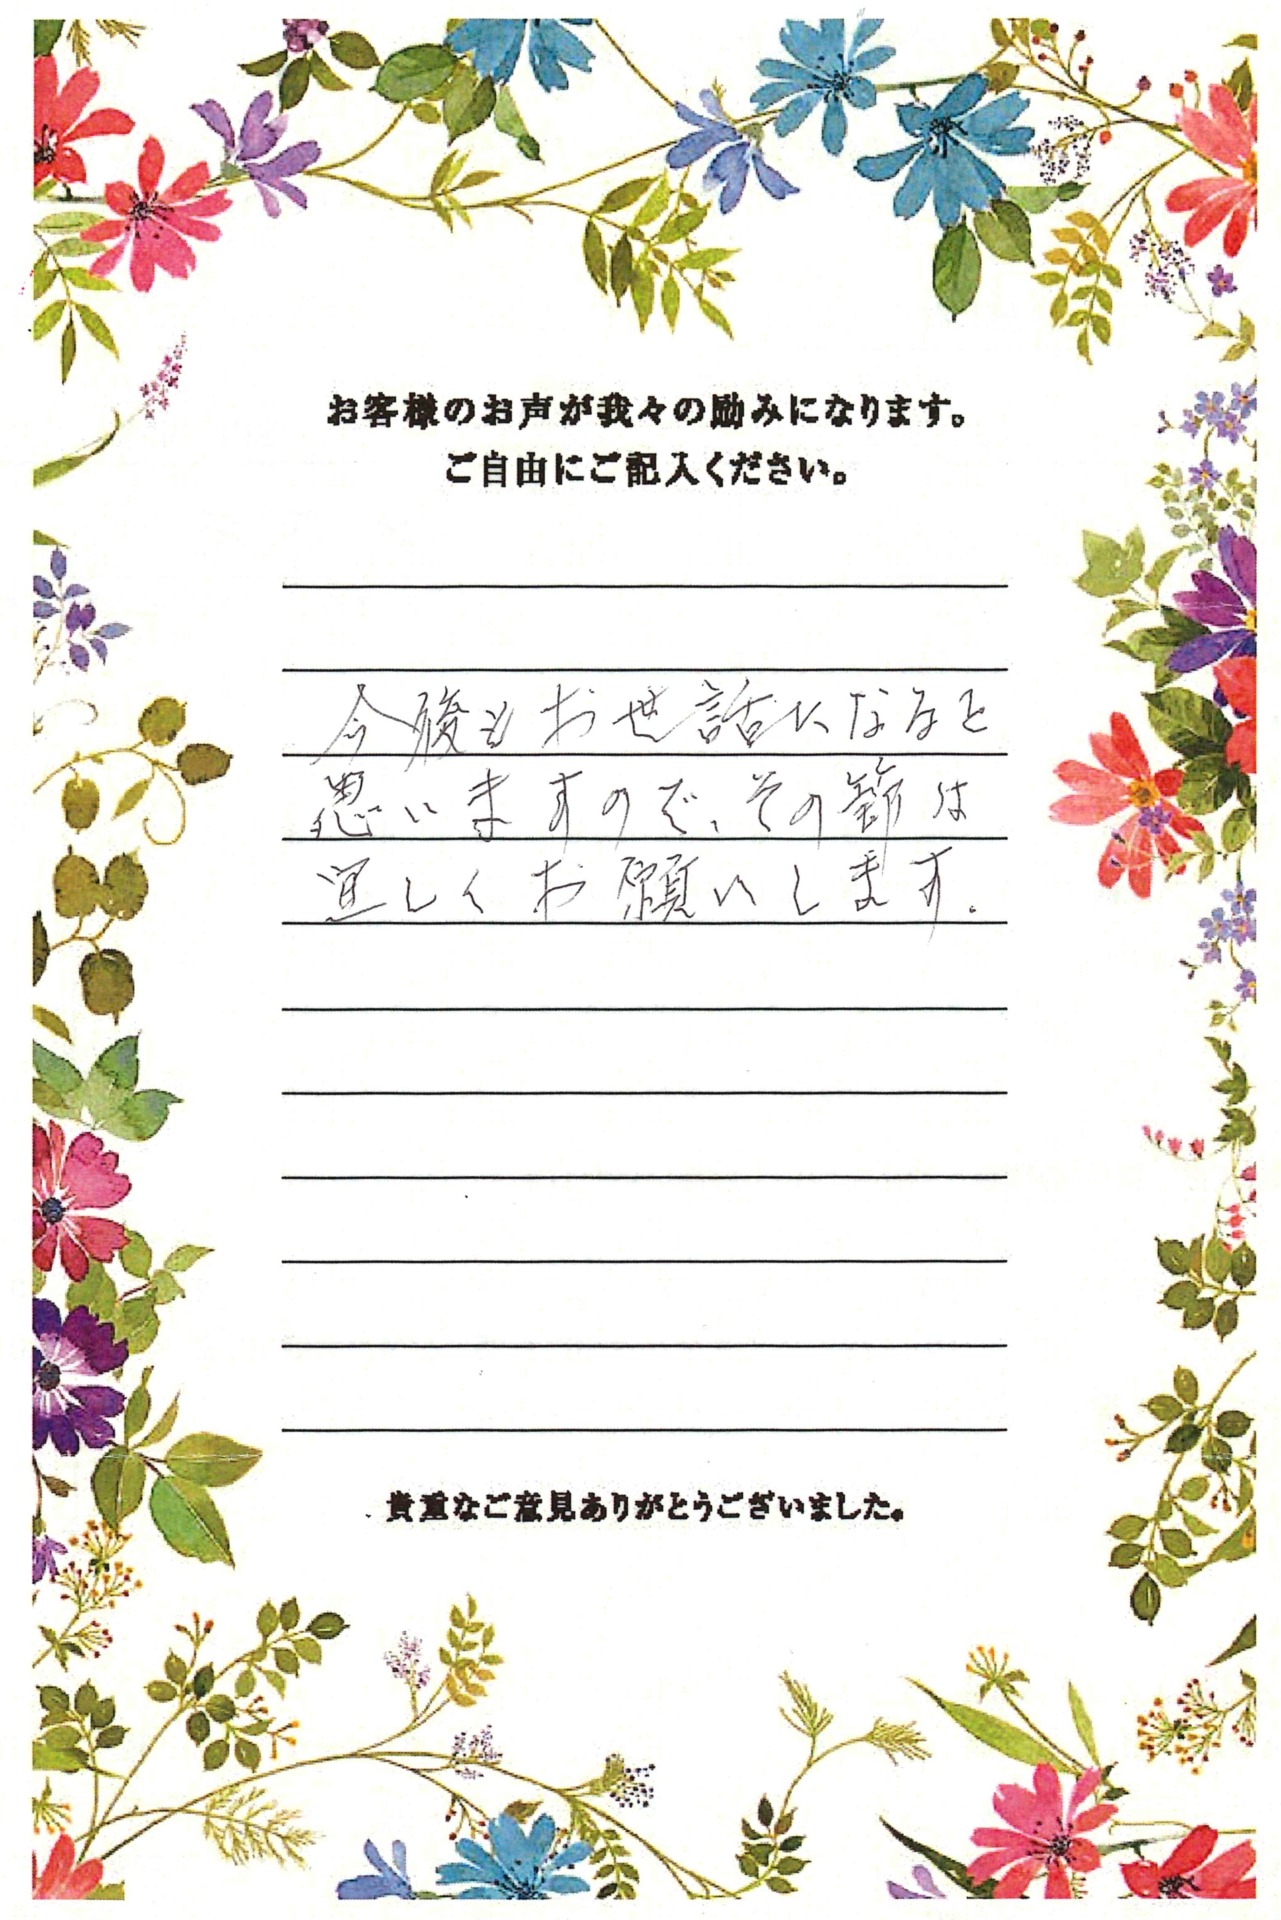 お客様のお声が我々の励みになります。
ご自由にご記入ください。
今後もお世話になると
思いますので、その節は
宜しくお願いします。
貴重なご意見ありがとうございました。